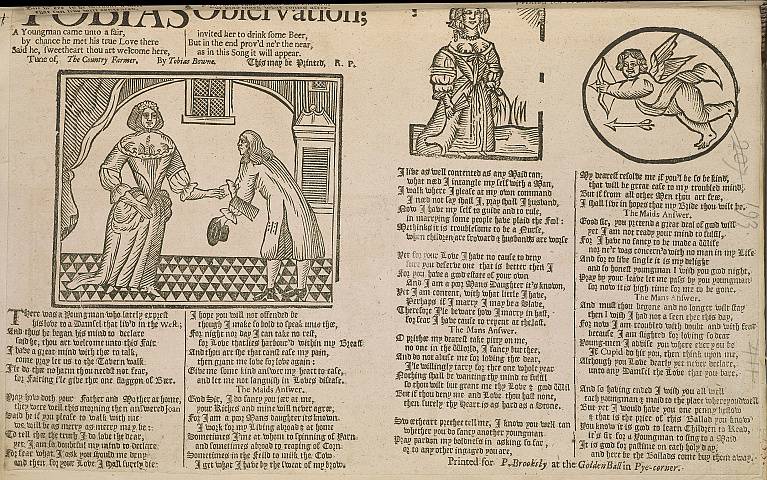 TOBIAS Observation;
A Youngman came unto a fair,
by chance he met his true Love there
Said he, sweetheart thou art welcome here,
invited her to drink some Beer,
But in the end prov'd ne'r the near,
as in this Song it will appear.
Tune of, The Country Farmer, By Tobias Bowne. This may be Printed, R. P.
There was a Youngman who lately exprest
his love to a Damsel that liv'd in the West;
And thus he began his mind to declare
said he, thou art welcome unto this Fair
I have a great mind with thee to talk,
come pray let us to the Tavern walk
I'le do thee no harm thou needst not fear,
for Fairing I'le give thee one flaggon of Beer.
Pray how doth your Father and Mother at home,
they were well this morning then answered Joan
Said he if you please to walk with me
we will be as merry as merry may be:
To tell thee the truth I do love the dear,
yet, I am so doubtful my mind to declare
For fear what I ask you should me deny
and then for your Love I shall surely die:
I hope you will not offended be
though I make so bold to speak unto thee,
For night nor day I can take no rest,
for Love that lies harbour'd within my Breast
And thou art she that can ease my pain,
then grant me love for love again:
Give me some kind answer my heart to ease,
and let me not languish in Loves disease.
The Maids Answer.
Good Sir, I do fancy you jeer at me,
your Riches and mine will never agree,
For I am a poor Mans daughter its known.
I work for my Living abroad & at home
Sometimes I'me at whom to spinning of Yarn
and sometimes abroad to reaping of Corn
Sometimes in the Field to milk the Cow
I get what I have by the sweat of my brow.
I live as well contented as any Maid can,
what need I intangle my self with a Man,
I walk where I please at my own command
I need not say shall I, pray shall I husband,
Now I have my self to guide and to rule,
in marrying some people have plaid the Fool:
Methinks it is troublesome to be a Nurse,
when children are froward & husbands are worse
Yet for your Love I have no cause to deny
sure you deserve one that is better then I
For you have a good estate of your own
And I am a poor Mans Daughter it's known.
Yet I am content, with what little I have,
Perhaps if I marry I may be a Slave,
Therefore I'le beware how I marry in hast,
for fear I have cause to repent at the last.
The Mans Answer.
O prithee my dearest take pitty on me,
no one in the World, I fancy but thee,
And do not abuse me for loving thee dear,
I'le willingly tarry for thee one whole year
Nothing shall be wanting thy mind to fulfil
So thou wilt but grant me thy Love & good Will
But if thou deny me and Love thou hast none,
then surely thy Heart is as hard as a Stone.
Sweetheart prethee tell me, I know you well can
whether you do fancy another youngman
Pray pardon my boldness in asking so far
or to any other ingaged you are,
My dearest resolve me if you'l be so kind,
that will be great ease to my troubled mind;
But if from all other Men thou art free,
I shall live in hopes that my Bride thou wilt be.
The Maids Answer.
Good sir, you pretend a great deal of good will
yet I am not ready your mind to fulfil,
For I have no fancy to be made a Wife
nor ne'r was concern'd with no man in my Life
And for to live single it is my delight
and so honest youngman I wish you good night,
Pray by your leave let me pass by you youngman
for now it is high time for me to be gone.
The Mans Answer.
And must thou begone and no longer wilt stay
then I wish I had not a seen thee this day
For now I am troubled with doubt and with fear
because I am slighted for loving so dear
Young-men I advise you where ever you be
If Cupid do hit you, then think upon me,
Although you Love dearly yet never declare,
unto any Damsel the Love that you bare.
And so having ended I wish you all well
each youngman & maid to the place where you dwell
But yet I would have you one penny bestow
& that is the price of this Ballad you know
You know it is good to learn Children to Read,
It's fit for a Youngman to sing to a Maid
It is good for pastime on each holy day
and here be the Ballads come buy them away.
Printed for P. Brooksby at the Golden Ball in Pye-corner.